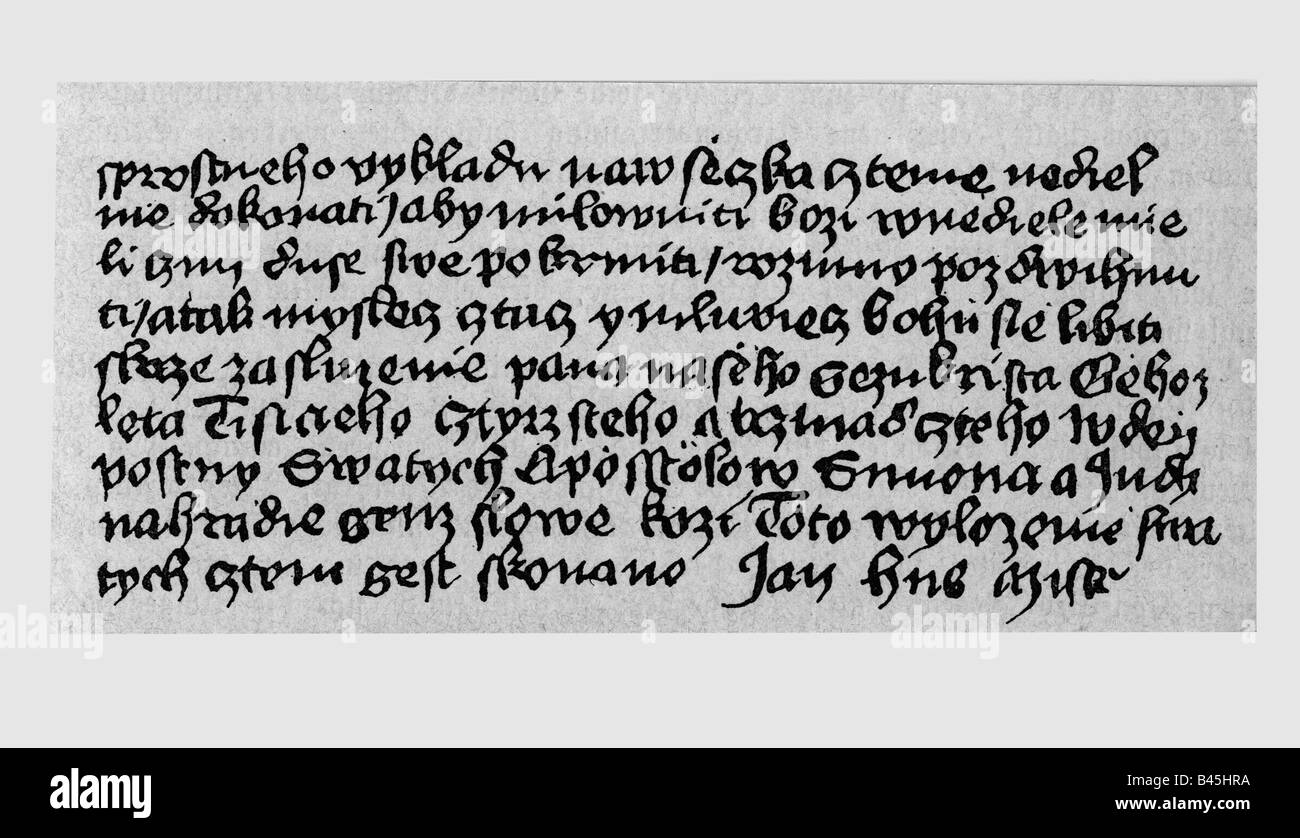 sprostneho vykladu naw šēczka čztenie nediel
nie dokonati/aby milownici bozi wnediele mie
li czim duse swe pokrmiti/rozumy pozdwihnu
ti/atak mysleč čztuč ymluvieč bohu sie libiti
skrze zaslizenie pana naseho Gezukrista Gehoz
leta Tisicieho čztyrzsteho atrzinadčzteho wden
postny Swatych Aposstolow Simona a Judi
nahradie genz slowe kozi Toto wylozenie swa
tych čzteni gest skonano Jan hus
alamy
Image ID: B45HRA
www.alamy.com